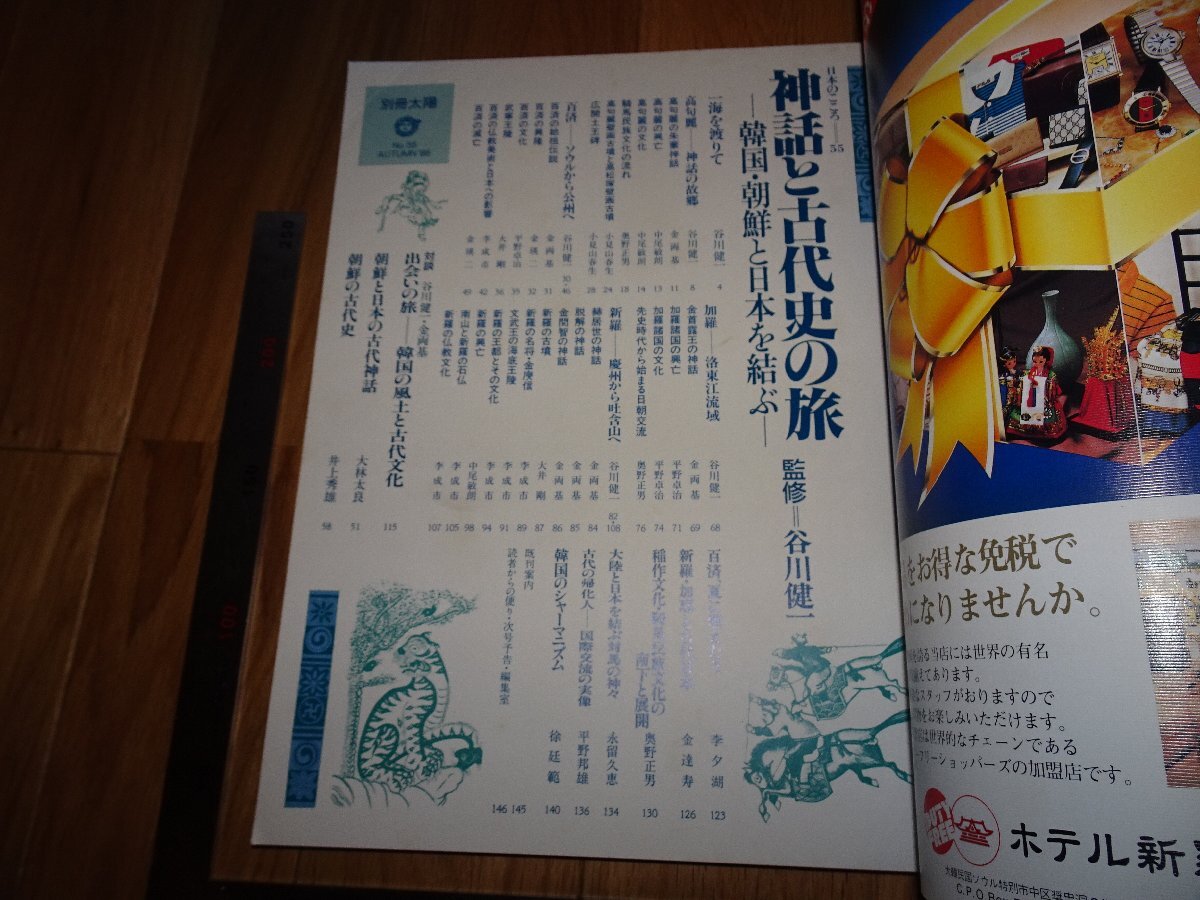 別冊太陽
No.55
AUTUMN '86
日本のこころ――55
神話と古代史の旅
―韓国・朝鮮と日本を結ぶ―
監修＝谷川健一
一海を渡りて 谷川健一 4
高句麗――神話の故郷 谷川健一 8
高句麗の朱蒙神話 金両基 11
高句麗の興亡 中尾敏朗 13
高句麗の文化 中尾敏朗 14
騎馬民族文化の流れ 奥野正男 18
高句麗壁画古墳と高松塚壁画古墳 小見山春生 24
広開土王碑 小見山春生 28
百済――ソウルから公州へ 谷川健一 30・46
百済の始祖伝説 金両基 31
百済の興隆 金瑛二 32
百済の文化 平野卓治 35
武寧王陵 大井剛 36
百済の仏教美術と日本への影響 李成市 42
百済の滅亡 金瑛二 49
加羅――洛東江流域 谷川健一 68
金首露王の神話 金両基 69
加羅諸国の興亡 平野卓治 71
加羅諸国の文化 平野卓治 74
先史時代から始まる日朝交流 奥野正男 76
新羅――慶州から吐含山へ 谷川健一 82・108
赫居世の神話 金両基 84
脱解の神話 金両基 85
金閼智の神話 金両基 86
新羅の古墳 大井剛 87
新羅の名将・金庾信 李成市 89
文武王の海底王陵 李成市 91
新羅の王都とその文化 李成市 94
新羅の興亡 中尾敏朗 98
南山と新羅の石仏 李成市 105
新羅の仏教文化 李成市 107
対談 谷川健一・金両基
出会いの旅――韓国の風土と古代文化 115
朝鮮と日本の古代神話 大林太良 51
朝鮮の古代史 井上秀雄 58
李夕湖 123
金達寿 126
稲作文化・騎馬民族文化の
南下と展開 奥野正男 130
大陸と日本を結ぶ対馬の神々 永留久恵 134
古代の帰化人――国際交流の実像 平野邦雄 136
韓国のシャーマニズム 徐廷範 140
既刊案内 145
読者からの便り・次号予告・編集室 146
をお得な免税で
になりませんか。
当店には世界の有名
えてあります。
なスタッフがおりますので
物をお楽しみいただけます。
は世界的なチェーンである
ーフリーショッパーズの加盟店です。
ホテル新
大韓民国ソウル特別市中区奨忠洞
C.P.O Box